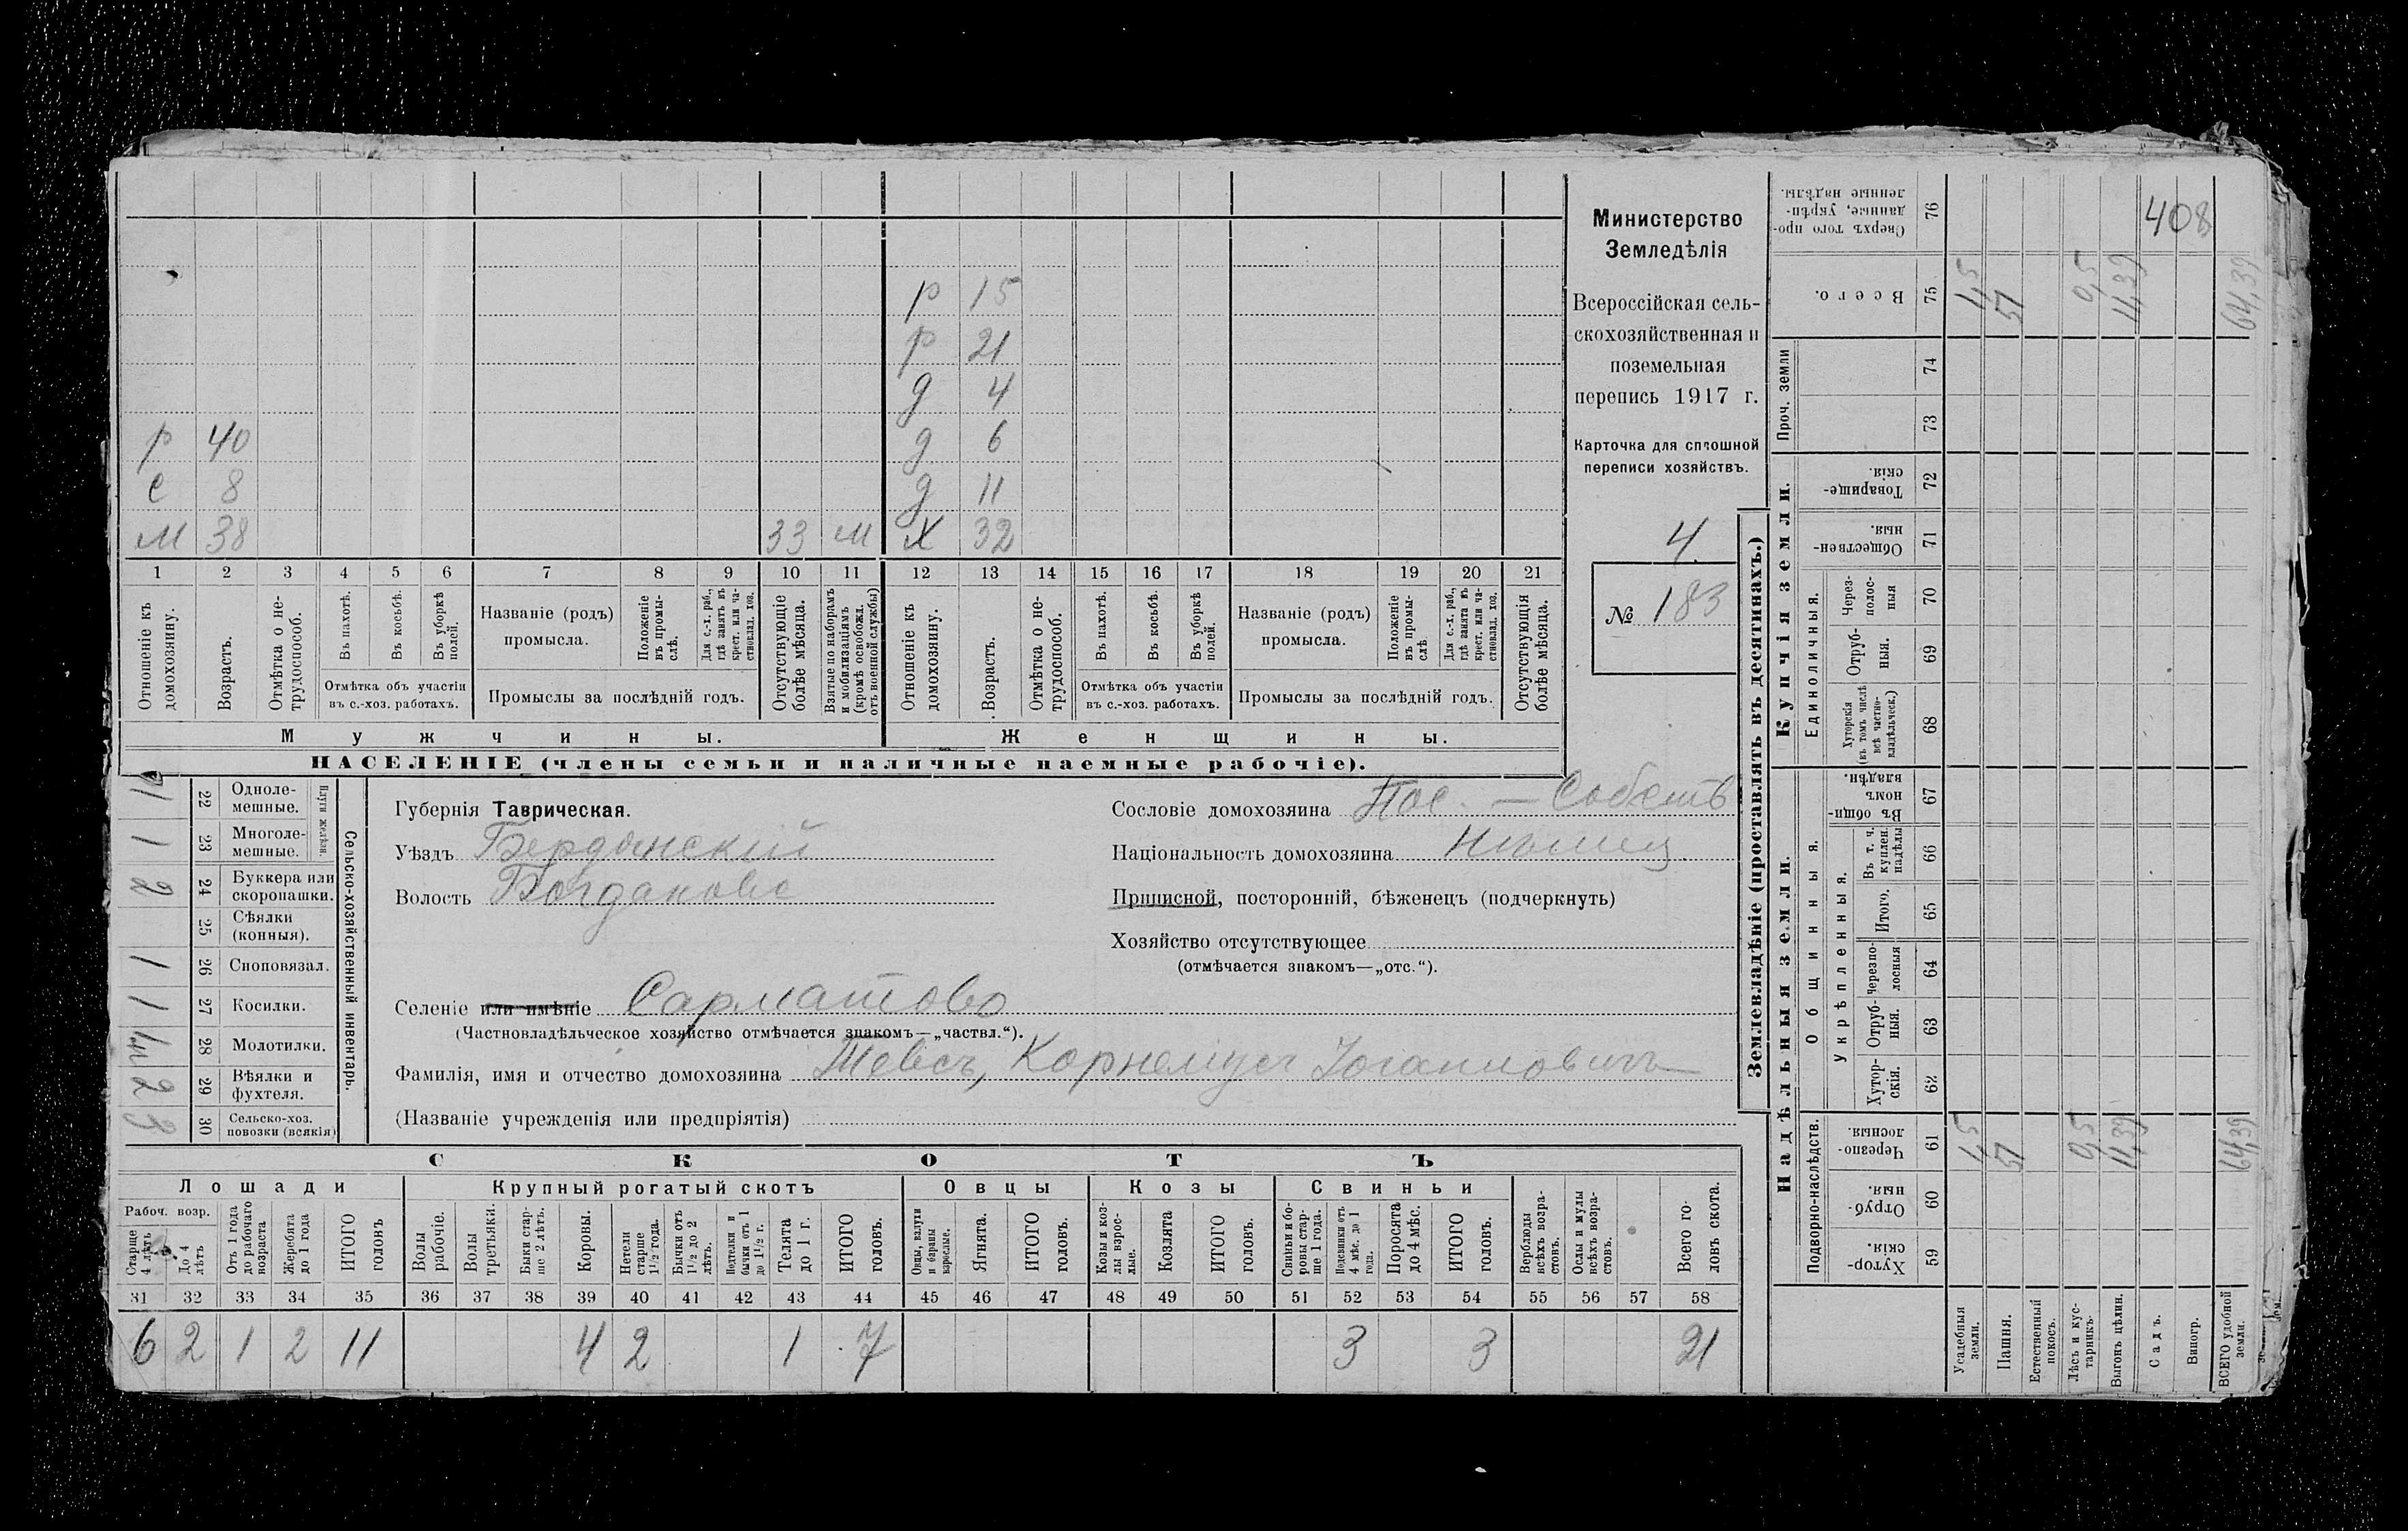 р 15
р 21
д 4
р 40 д 6
с 8 д 11
м 38 33 м х 32
1 2 3 4 5 6 7 8 9 10 11 12 13 14 15 16 17 18 19 20 21
Отношеніе къ домохозяину.
Возрастъ.
Отмѣтка о нетрудоспособ.
Въ пахотѣ.
Въ косьбѣ.
Въ уборкѣ полей.
Отмѣтка объ участіи
въ с.-хоз. работахъ.
Названіе (родъ)
промысла.
Положеніе въ промыслѣ.
Для с.-х. раб., гдѣ занятъ въ крест. или частновлад. хоз.
Промыслы за послѣдній годъ.
Отсутствующіе болѣе мѣсяца.
Взятые по наборамъ и мобилизаціямъ (кромѣ освобожд. отъ военной службы)
Отношеніе къ домохозяину.
Возрастъ.
Отмѣтка о нетрудоспособ.
Въ пахотѣ.
Въ косьбѣ.
Въ уборкѣ полей.
Отмѣтка объ участіи
въ с.-хоз. работахъ.
Названіе (родъ)
промысла.
Положеніе въ промыслѣ
Для с.-х. раб., гдѣ занята въ крест. или частновлад. хоз.
Промыслы за послѣдній годъ.
Отсутствующія болѣе мѣсяца.
Мужчины. Женщины.
НАСЕЛЕНІЕ (члены семьи и наличные наемные рабочіе).
Министерство
Земледѣлія
Всероссійская сель-
скохозяйственная и
поземельная
перепись 1917 г.
Карточка для сплошной
переписи хозяйствъ.
4
№ 183
Сельско-хозяйственный инвентарь.
Плуги желѣзн.
1 22 Одноле-
мешные.
1 23 Многоле-
мешные.
2 24 Буккера или
скоропашки.
25 Сѣялки
(конныя).
1 26 Сноповязал.
1 27 Косилки.
28 Молотилки.
2 29 Вѣялки и
фухтеля.
3 30 Сельско-хоз.
повозки (всякія)
Губернія Таврическая.
Уѣздъ Бердянскій
Волость Богдановс
Селеніе или имѣніе Сарматово
(Частновладѣльческое хозяйство отмѣчается знакомъ—„частвл.“).
Фамилія, имя и отчество домохозяина Тевсъ, Корнелиусъ Іоганновичъ
(Названіе учрежденія или предпріятія)
Сословіе домохозяина Пос. — Собств
Національность домохозяина Нѣмец.
Приписной, посторонній, бѣженецъ (подчеркнуть)
Хозяйство отсутствующее
(отмѣчается знакомъ—„отс.“).
СКОТЪ
Лошади Крупный рогатый скотъ Овцы Козы Свиньи
Рабоч. возр.
Старше 4 лѣтъ
До 4 лѣтъ
Отъ 1 года до рабочаго возраста
Жеребята до 1 года
ИТОГО головъ
Волы рабочіе.
Волы третьяки.
Быки старше 2 лѣтъ.
Коровы.
Нетели старше 1½ года.
Бычки отъ 1½ до 2 лѣтъ.
Подтелки и бычки отъ 1 до 1½ г.
Телята до 1 г.
ИТОГО головъ.
Овцы, валухи и бараны взрослые.
Ягнята.
ИТОГО головъ.
Козы и козлы взрослые.
Козлята
ИТОГО головъ.
Свиньи и боровы старше 1 года.
Подсвинки отъ 4 мѣс. до 1 года.
Поросята до 4 мѣс.
ИТОГО головъ.
Верблюды всѣхъ возрастовъ.
Ослы и мулы всѣхъ возрастовъ.
Всего головъ скота.
31 32 33 34 35 36 37 38 39 40 41 42 43 44 45 46 47 48 49 50 51 52 53 54 55 56 57 58
6 2 1 2 11 4 2 1 7 3 3 21
Землевладѣніе (проставлять въ десятинахъ.)
Купчія земли.
Надѣльныя земли.
Сверхъ того проданные, укрѣпленные надѣлы. 76
408
Всего. 75 1,5 51 0,5 11,39 64,39
Проч. земли
74
73
Товарищескія. 72
Общественныя. 71
Единоличныя.
Черезполосныя 70
Отрубныя. 69
Хуторскія (въ томъ числѣ всѣ частновладѣльческ.) 68
Общинныя.
Въ общинномъ владѣн. 67
Укрѣпленныя.
Въ т. ч. куплен. надѣлы 66
Итого. 65
Черезполосныя 64
Отрубныя. 63
Хуторскія. 62
Подворно-наслѣдств.
Черезполосныя. 61 1,5 51 0,5 11,39 64,39
Отрубныя. 60
Хуторскія. 59
Усадебныя земли.
Пашня.
Естественный покосъ.
Лѣсъ и кустарникъ.
Выгонъ цѣлин.
Садъ.
Виногр.
ВСЕГО удобной земли.